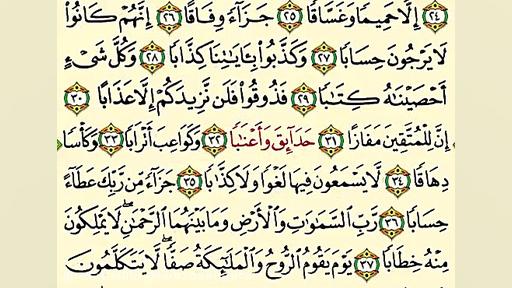 ﴿٢٤﴾ إِلَّا حَمِيمًا وَغَسَّاقًا ﴿٢٥﴾ جَزَآءً وِفَاقًا ﴿٢٦﴾ إِنَّهُمْ كَانُوا۟
لَا يَرْجُونَ حِسَابًا ﴿٢٧﴾ وَكَذَّبُوا۟ بِـَٔايَـٰتِنَا كِذَّابًا ﴿٢٨﴾ وَكُلَّ شَىْءٍ
أَحْصَيْنَـٰهُ كِتَـٰبًا ﴿٢٩﴾ فَذُوقُوا۟ فَلَن نَّزِيدَكُمْ إِلَّا عَذَابًا ﴿٣٠﴾
إِنَّ لِلْمُتَّقِينَ مَفَازًا ﴿٣١﴾ حَدَآئِقَ وَأَعْنَـٰبًا ﴿٣٢﴾ وَكَوَاعِبَ أَتْرَابًا ﴿٣٣﴾ وَكَأْسًا
دِهَاقًا ﴿٣٤﴾ لَّا يَسْمَعُونَ فِيهَا لَغْوًا وَلَا كِذَّٰبًا ﴿٣٥﴾ جَزَآءً مِّن رَّبِّكَ عَطَآءً
حِسَابًا ﴿٣٦﴾ رَّبِّ ٱلسَّمَـٰوَٰتِ وَٱلْأَرْضِ وَمَا بَيْنَهُمَا ٱلرَّحْمَـٰنِ ۖ لَا يَمْلِكُونَ
مِنْهُ خِطَابًا ﴿٣٧﴾ يَوْمَ يَقُومُ ٱلرُّوحُ وَٱلْمَلَـٰٓئِكَةُ صَفًّا ۖ لَّا يَتَكَلَّمُونَ